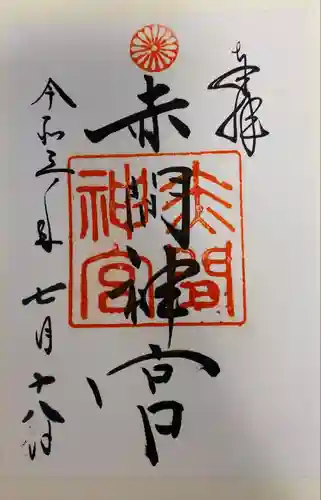 奉拝
赤間神宮
赤間神宮
令和三年七月十八日